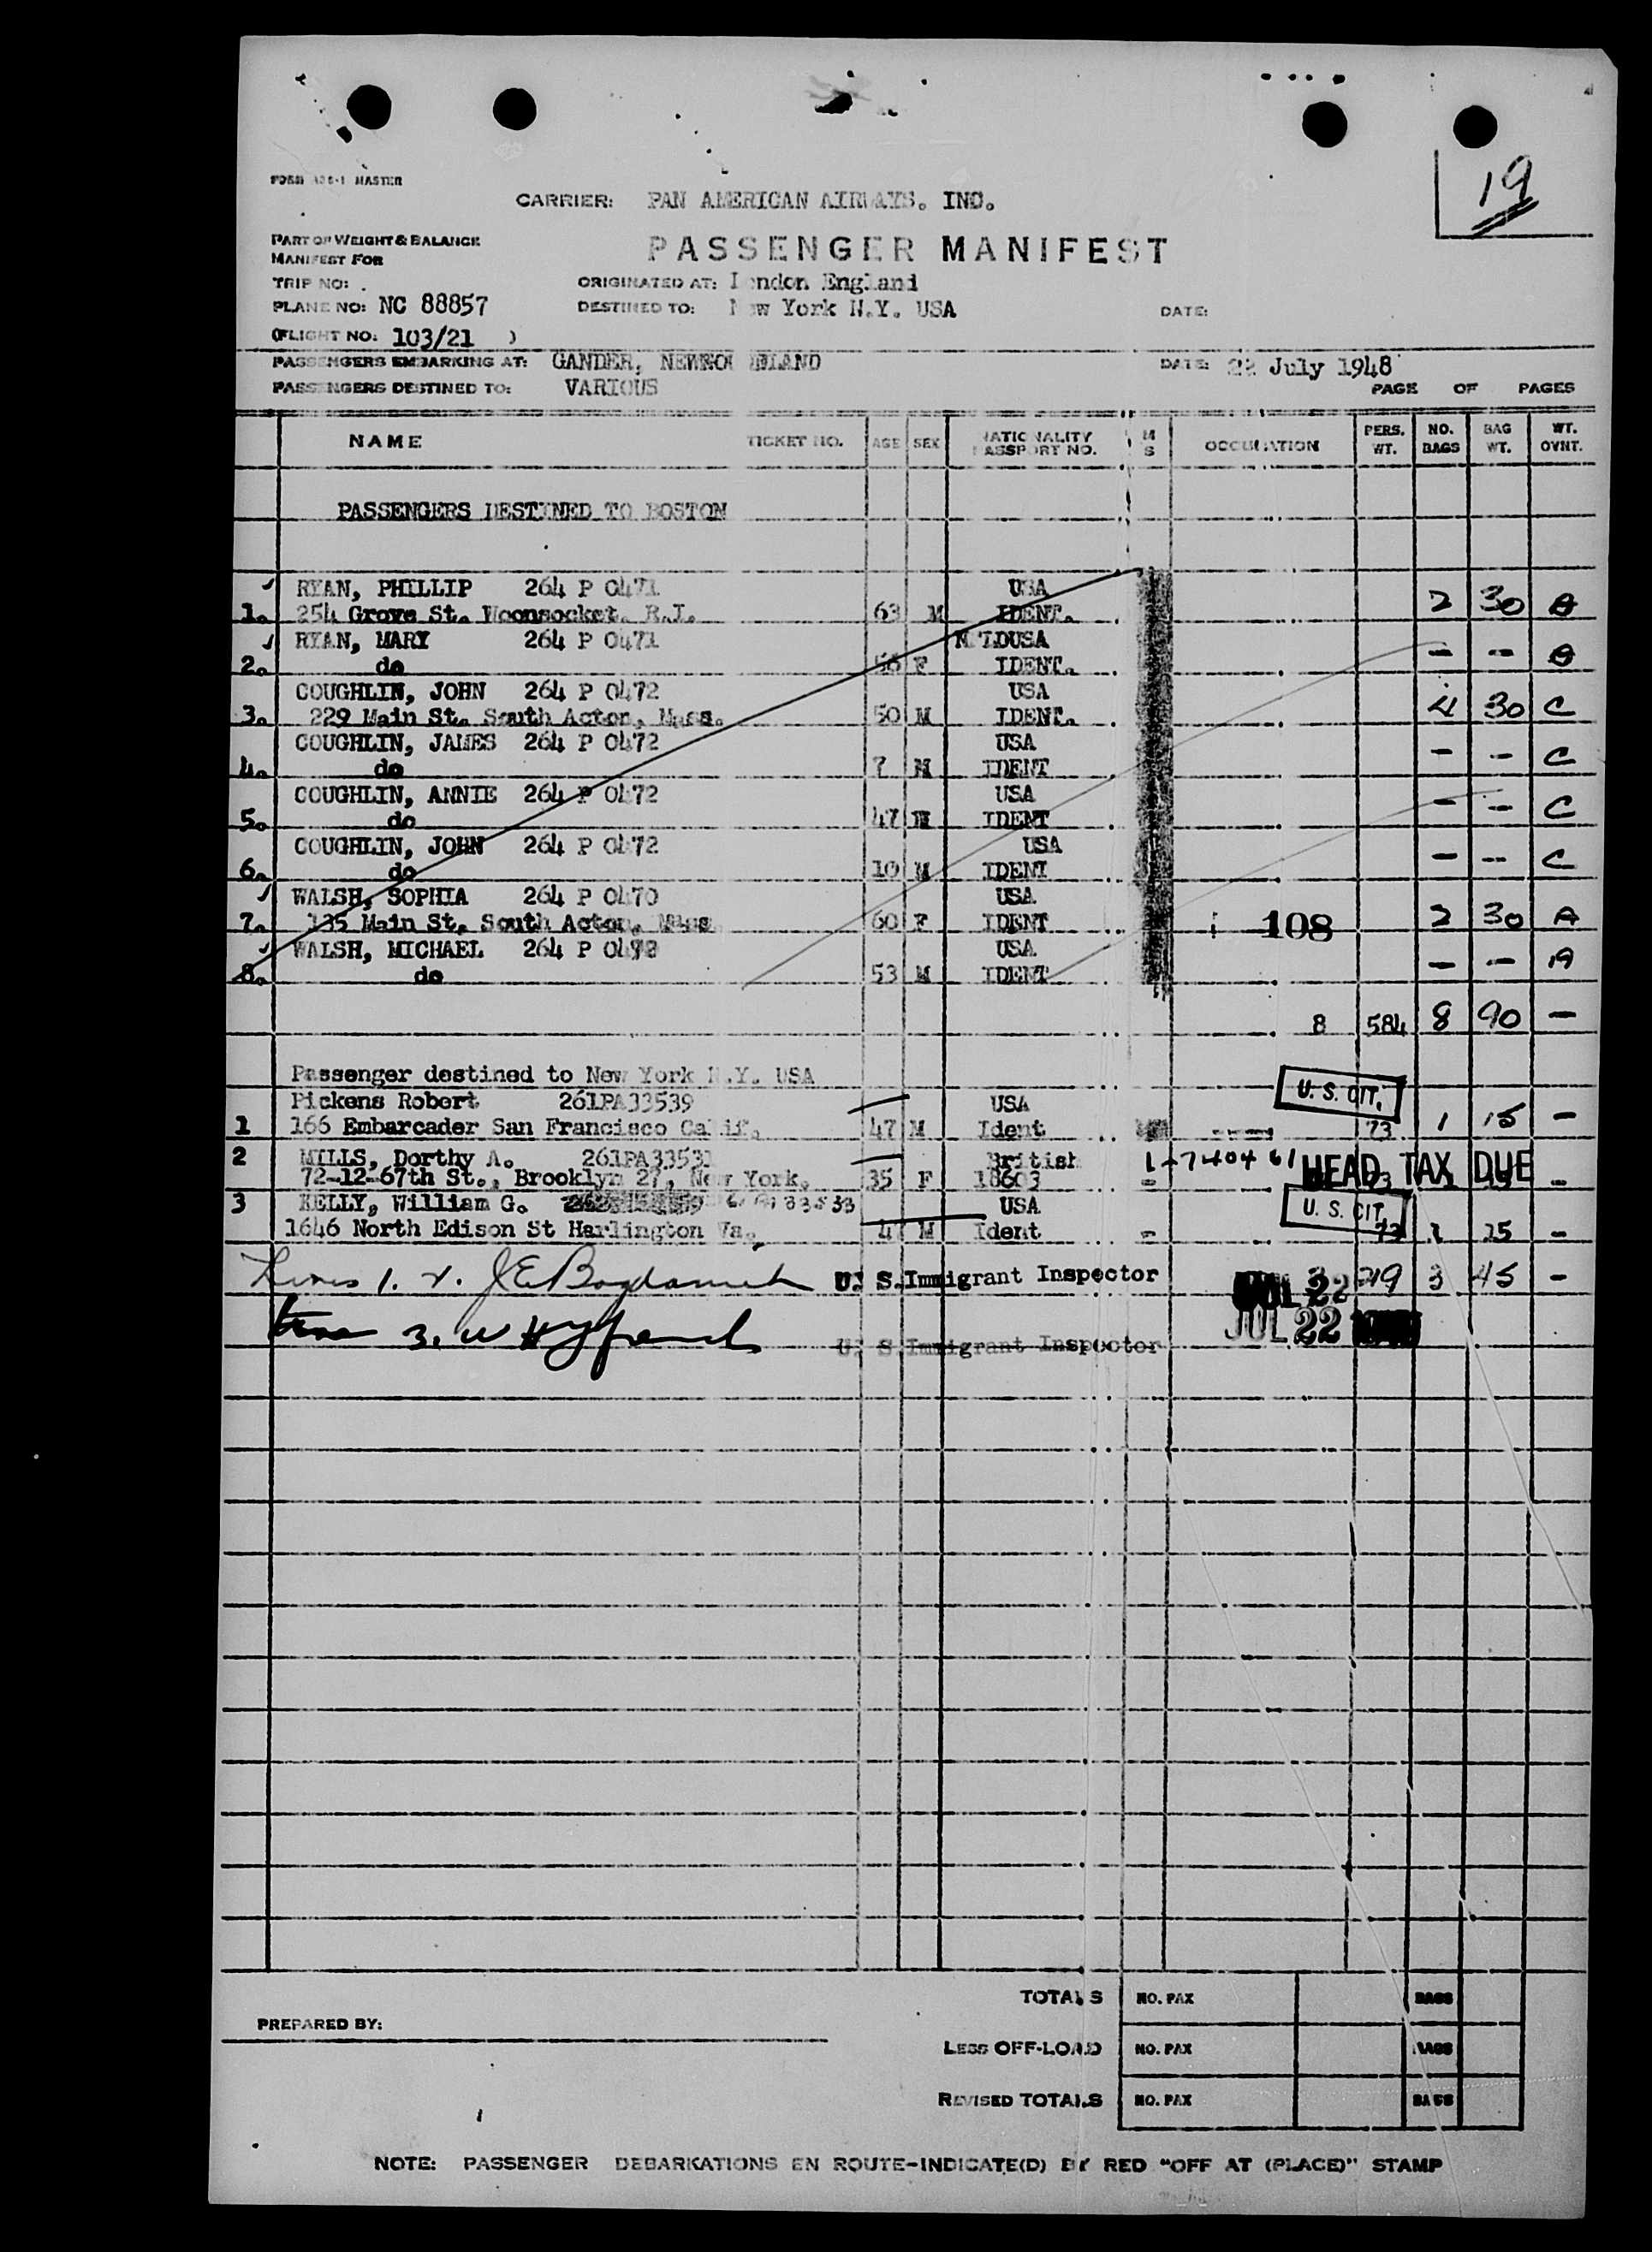 19
CARRIER: PAN AMERICAN AIRWAYS. INC.
PART OF WEIGHT & BALANCE
MANIFEST FOR
PASSENGER MANIFEST
TRIP NO:
ORIGINATED AT: London England
PLANE NO: NC 88857
DESTINED TO: New York N.Y. USA
DATE:
(FLIGHT NO: 103/21 )
PASSENGERS EMBARKING AT: GANDER, NEWFOUNDLAND
DATE: 22 July 1948
PASSENGERS DESTINED TO: VARIOUS
PAGE OF PAGES
NAME TICKET NO. AGE SEX NATIONALITY PASSPORT NO. M S OCCUPATION PERS. WT. NO. BAGS BAG WT. WT. OVNT.
PASSENGERS DESTINED TO BOSTON
RYAN, PHILLIP 264 P 0471 USA
1. 254 Grove St. Woonsocket. R.I. 63 M IDENT. 2 30
RYAN, MARY 264 P 0471 USA
2. do F IDENT. - -
COUGHLIN, JOHN 264 P 0472 USA
3. 229 Main St. South Acton, Mass. 50 M IDENT. 4 30 C
COUGHLIN, JAMES 264 P 0472 USA
4. do 7 M IDENT - - C
COUGHLIN, ANNIE 264 P 0472 USA
5. do 47 IDENT - - C
COUGHLIN, JOHN 264 P 0472 USA
6. do 10 M IDENT - - C
WALSH, SOPHIA 264 P 0470 USA
7. 135 Main St. South Acton. Mass 60 F IDENT 108 2 30 A
WALSH, MICHAEL 264 P USA
8. do 53 M IDENT - - A
8 584 8 90 -
Passenger destined to New York N.Y. USA
Pickens Robert 261PA33539 USA U. S. CIT.
1 166 Embarcader San Francisco Calif. 47 M Ident 73 1 15 -
2 MILLS, Dorthy A. 261PA33531 British
72-12-67th St., Brooklyn 27, New York. 35 F 18603 HEAD TAX DUE -
3 KELLY, William G. USA U. S. CIT.
1646 North Edison St Harlington Va. M Ident - 73 1 15 -
Lines 1. 2. U. S. Immigrant Inspector JUL 22 3 45 -
3. U. S. Immigrant Inspector JUL 22
TOTALS NO. PAX BAGS
PREPARED BY:
LESS OFF-LOAD NO. PAX BAGS
REVISED TOTALS NO. PAX BAGS
NOTE: PASSENGER DEBARKATIONS EN ROUTE-INDICATE(D) BY RED "OFF AT (PLACE)" STAMP